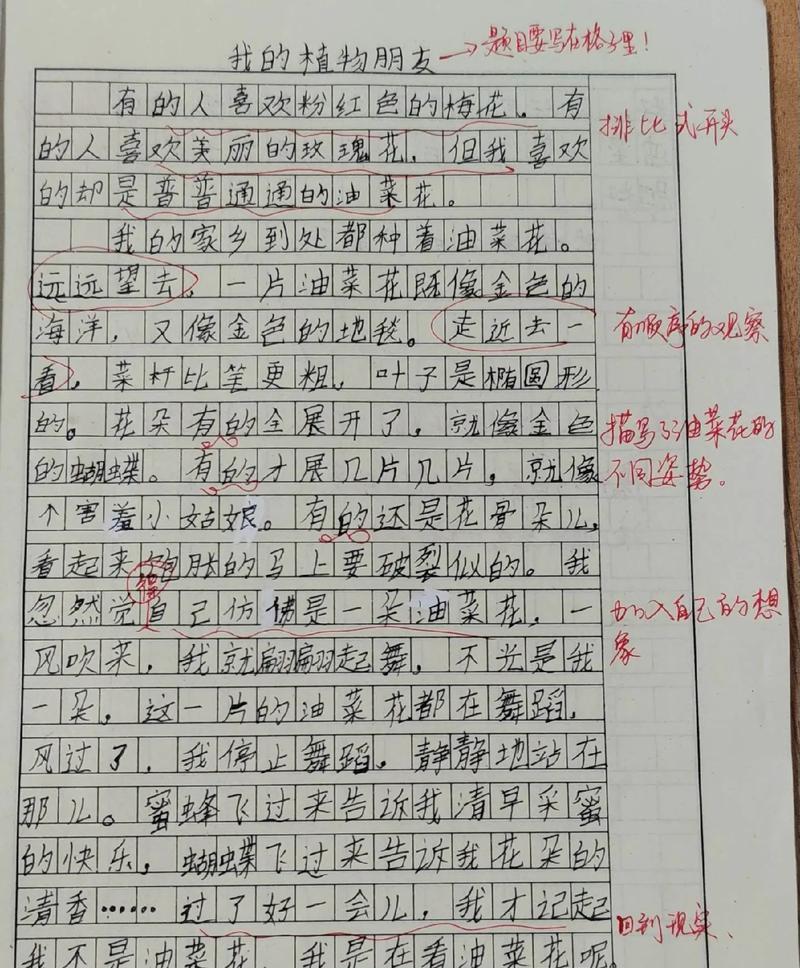 我的植物朋友 → 题目要写在格子里！
有的人喜欢粉红色的梅花。有
的人喜欢美丽的玫瑰花，但我喜欢
排比式开头
的却是普普通通的油菜花。
我的家乡到处都种着油菜花。
远远望去，一片油菜花既像金色的
海洋，又像金色的地毯。走近去一
有顺序的观察
看，菜杆比笔更粗，叶子是椭圆形
的。花朵有的全展开了，就像金色
描写了油菜花的
的蝴蝶。有的才展几片几片，就像
不同姿势。
个害羞小姑娘。有的还是花骨朵儿，
看起来饱胀的马上要破裂似的。我
得
忽然觉自己仿佛是一朵油菜花，一
加入自己的想
象
风吹来，我就翩翩起舞，不光是我
一朵，这一片的油菜花都在舞蹈，
风过了，我停止舞蹈，静静地站在
那儿。蜜蜂飞过来告诉我清早采蜜
的快乐，蝴蝶飞过来告诉我花朵的
清香……过了好一会儿，我才记起
回到现实、
我不是油菜花，我是在看油菜花呢。